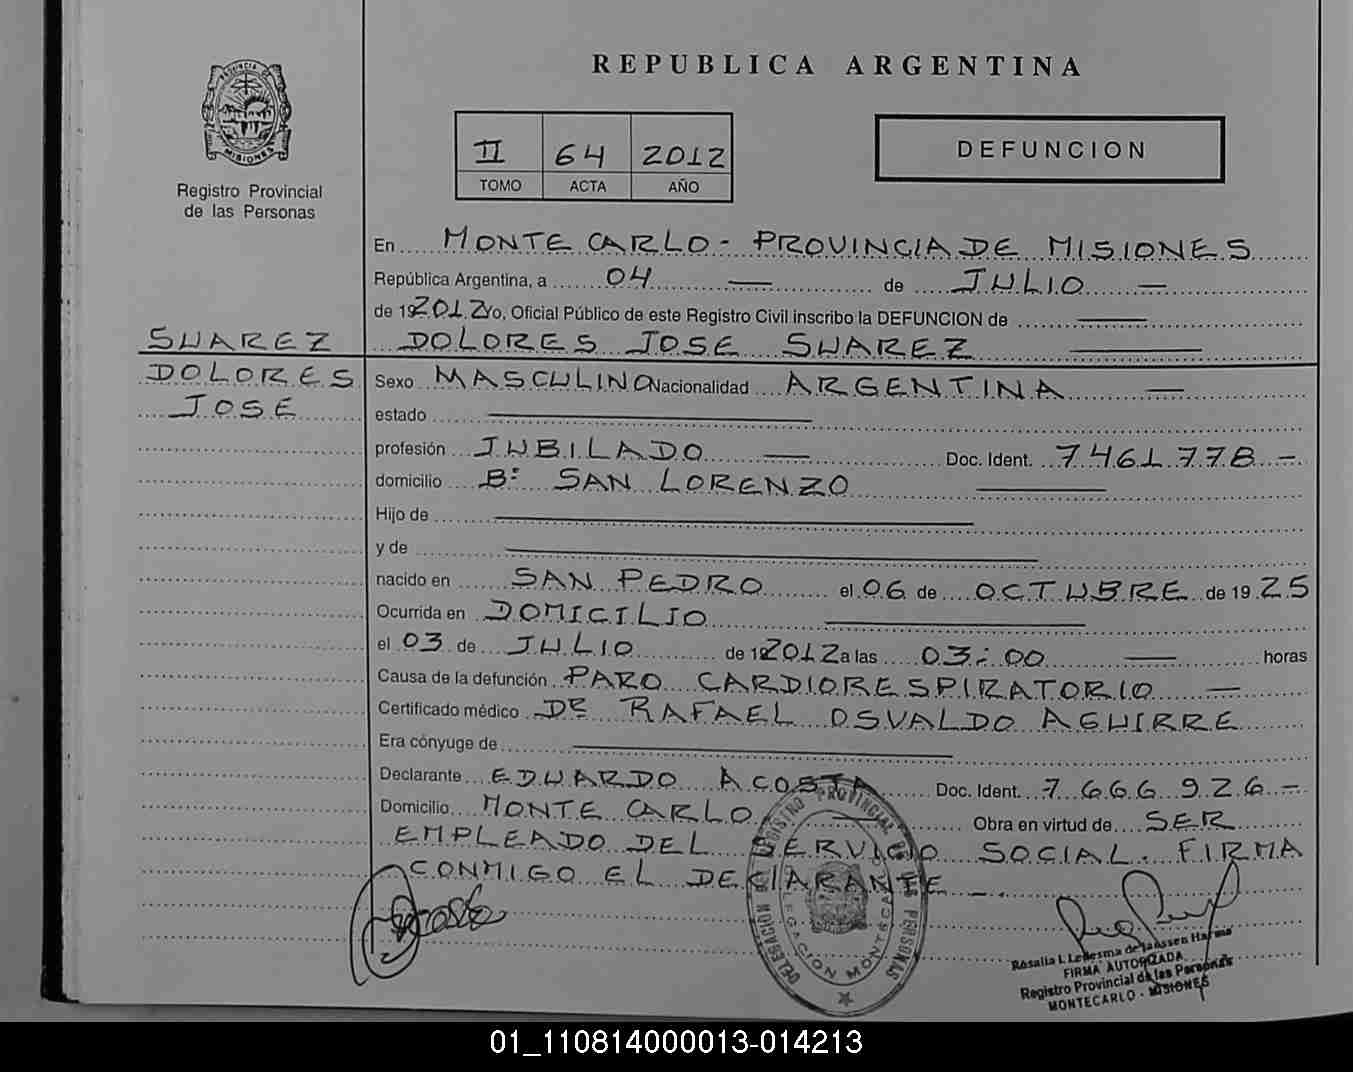 PROVINCIA DE
MISIONES
Registro Provincial
de las Personas
SUAREZ
DOLORES
JOSE
REPUBLICA ARGENTINA
II 64 2012
TOMO ACTA AÑO
DEFUNCION
En MONTE CARLO - PROVINCIA DE MISIONES
República Argentina, a 04 — de JULIO —
de 192012 Yo, Oficial Público de este Registro Civil inscribo la DEFUNCION de —
DOLORES JOSE SUAREZ —
Sexo MASCULINO Nacionalidad ARGENTINA —
estado —
profesión JUBILADO — Doc. Ident. 7461778 -
domicilio Bº SAN LORENZO —
Hijo de —
y de —
nacido en SAN PEDRO el 06 de OCTUBRE de 1925
Ocurrida en DOMICILIO —
el 03 de JULIO de 192012 a las 03:00 — horas
Causa de la defunción PARO CARDIORESPIRATORIO —
Certificado médico DR RAFAEL OSVALDO AGUIRRE
Era cónyuge de —
Declarante EDUARDO ACOSTA Doc. Ident. 7.666.926 -
Domicilio MONTE CARLO — Obra en virtud de SER
EMPLEADO DEL SERVICIO SOCIAL. FIRMA
CONMIGO EL DECLARANTE -.
REGISTRO PROVINCIAL DE LAS PERSONAS
DELEGACION MONTECARLO
Rosalia I. Ledesma de Janssen Harms
FIRMA AUTORIZADA
Registro Provincial de las Personas
MONTECARLO - MISIONES
01_110814000013-014213